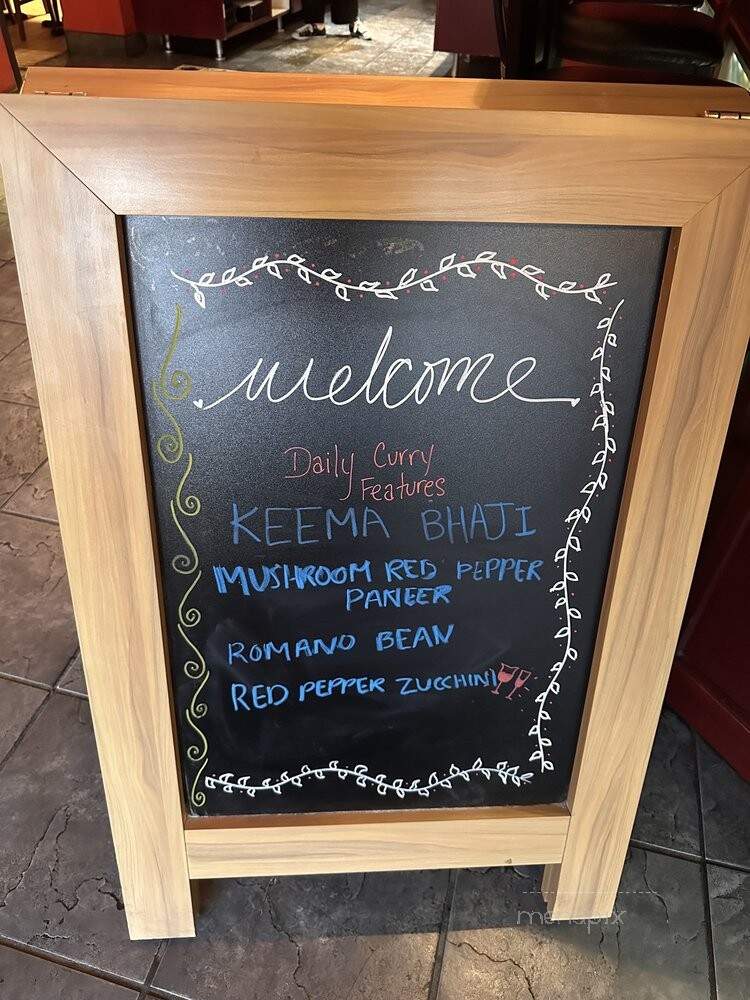 welcome
Daily Curry
Features
KEEMA BHAJI
MUSHROOM RED PEPPER
PANEER
ROMANO BEAN
RED PEPPER ZUCCHINI
menupix